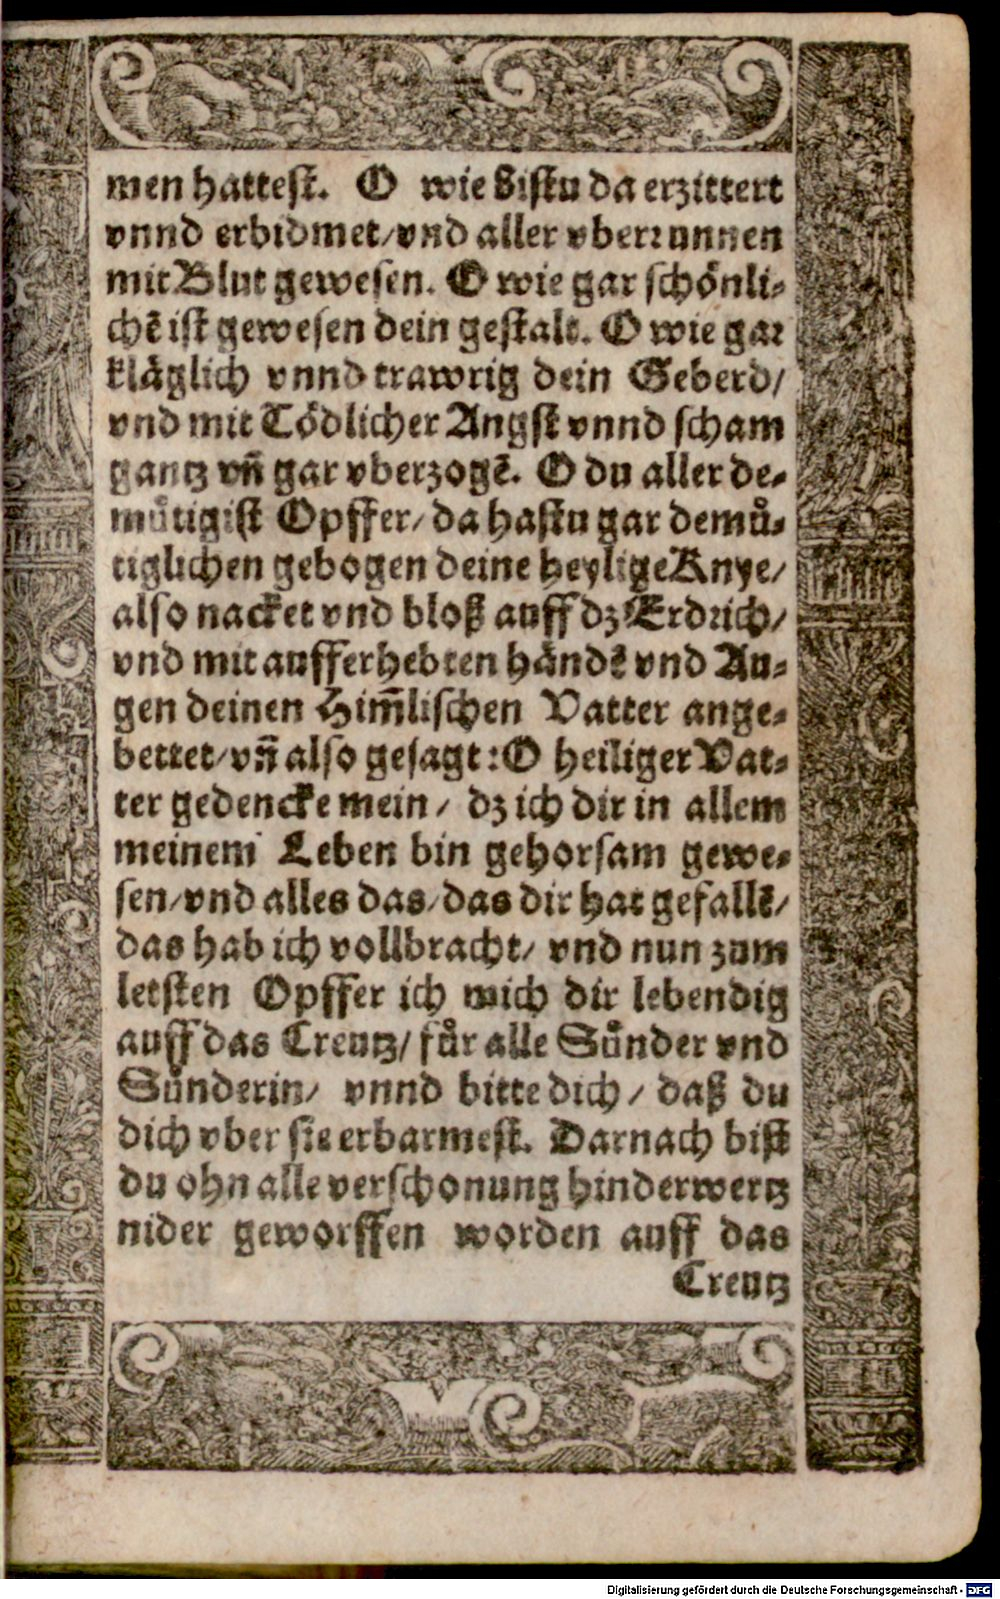 men hattest. O wie bistu da erzittert
vnnd erbidmet/vnd aller vberrunnen
mit Blut gewesen. O wie gar schönli-
chē ist gewesen dein gestalt. O wie gar
kläglich vnnd trawrig dein Geberd/
vnd mit Tödlicher Angst vnnd scham
gantz vñ gar vberzogē. O du aller de-
mütigist Opffer/da hastu gar demuͤ-
tiglichen gebogen deine heylige Knye/
also nacket vnd bloß auff dz Erdrich/
vnd mit aufferhebten händē vnd Au-
gen deinen Him̃lischen Vatter ange-
bettet/vñ also gesagt: O heiliger Vat-
ter gedencke mein/ dz ich dir in allem
meinem Leben bin gehorsam gewe-
sen/vnd alles das/das dir hat gefallē/
das hab ich vollbracht/ vnd nun zum
letsten Opffer ich mich dir lebendig
auff das Creutz/ fuͤr alle Suͤnder vnd
Suͤnderin/ vnnd bitte dich/ daß du
dich vber sie erbarmest. Darnach bist
du ohn alle verschonung hinderwertz
nider geworffen worden auff das
Creutz
Digitalisierung gefördert durch die Deutsche Forschungsgemeinschaft - DFG